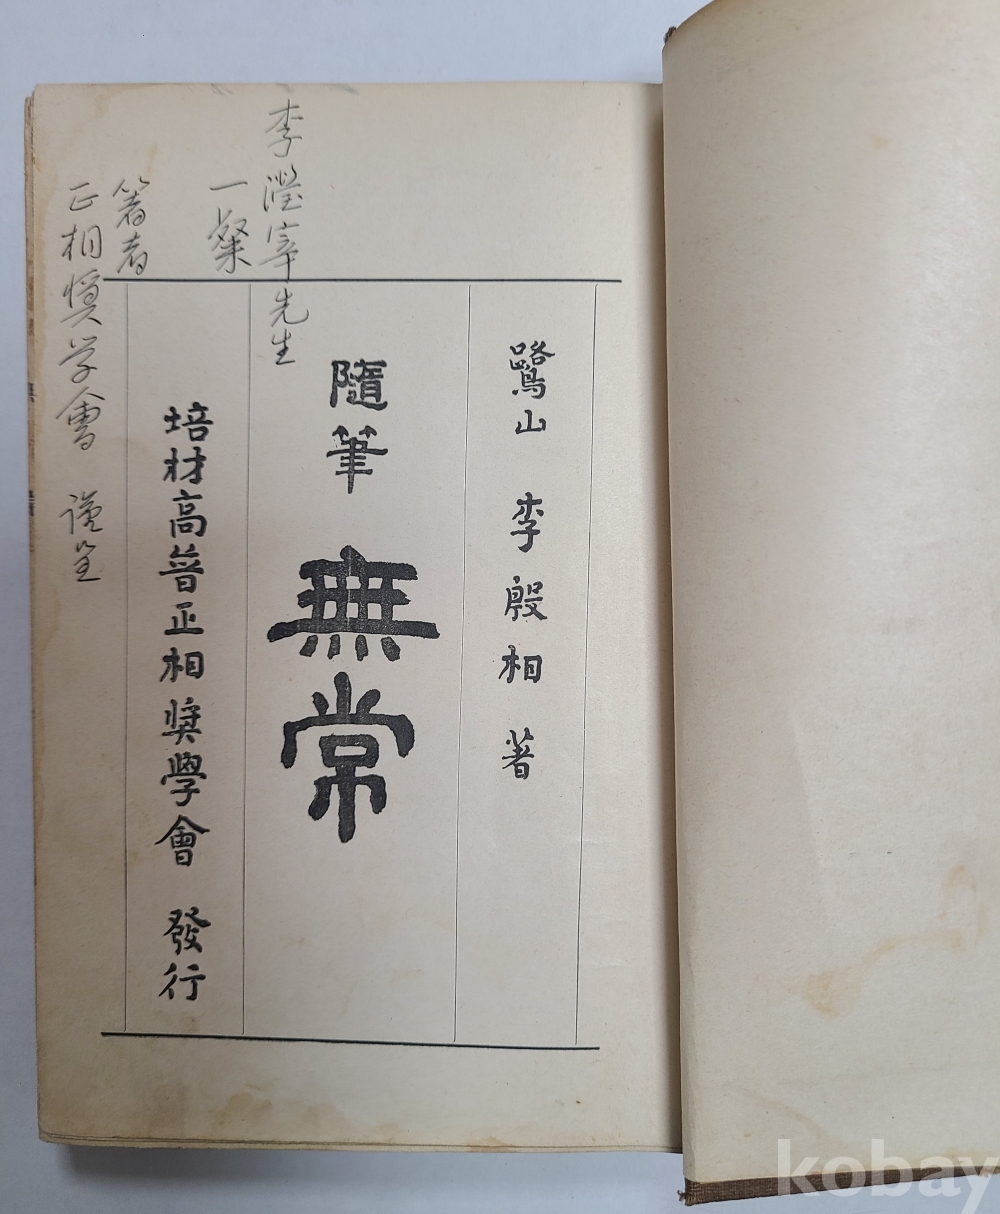 鷺山 李殷相 著
隨筆 無常
培材高普正相奬學會 發行
李瀅宰先生
一粲
著者
正相奬学會 謹呈
kobay